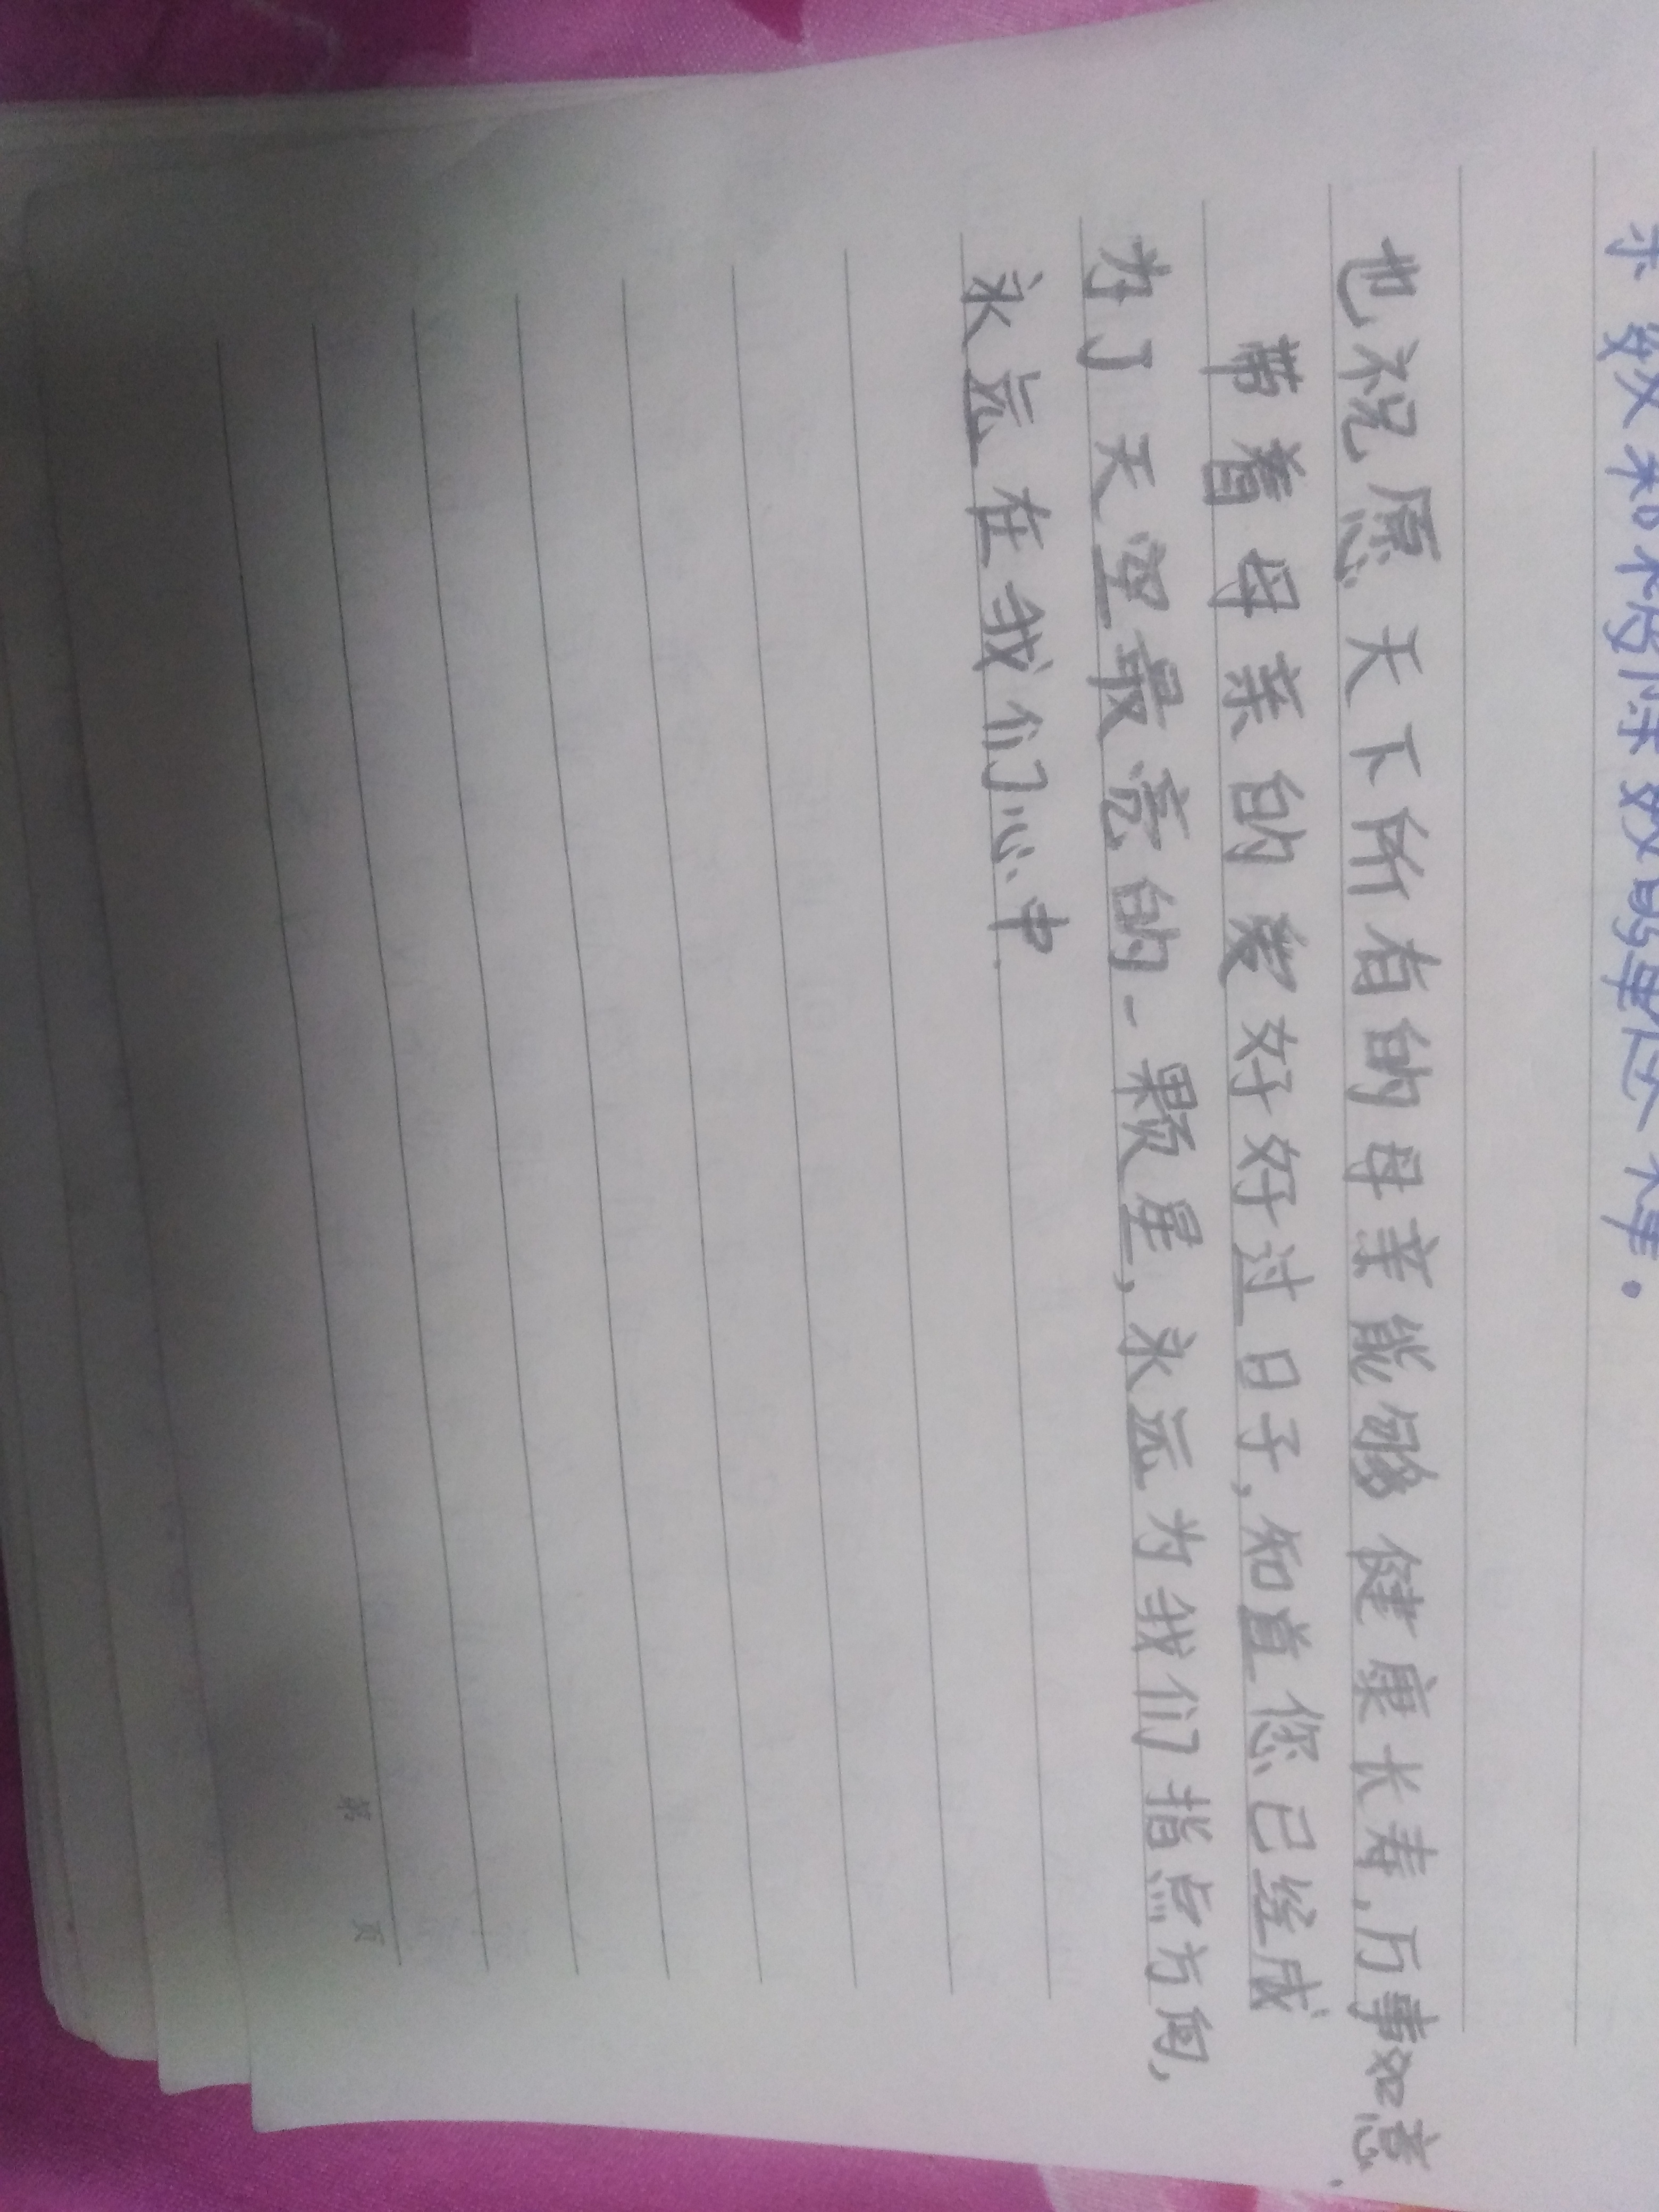 余数和不得除数的单位一样.
也祝愿天下所有的母亲能够健康长寿,万事如意.
带着母亲的爱好好过日子,知道您已经成
为了天空最亮的一颗星,永远为我们指点方向,
永远在我们心中.
第 页